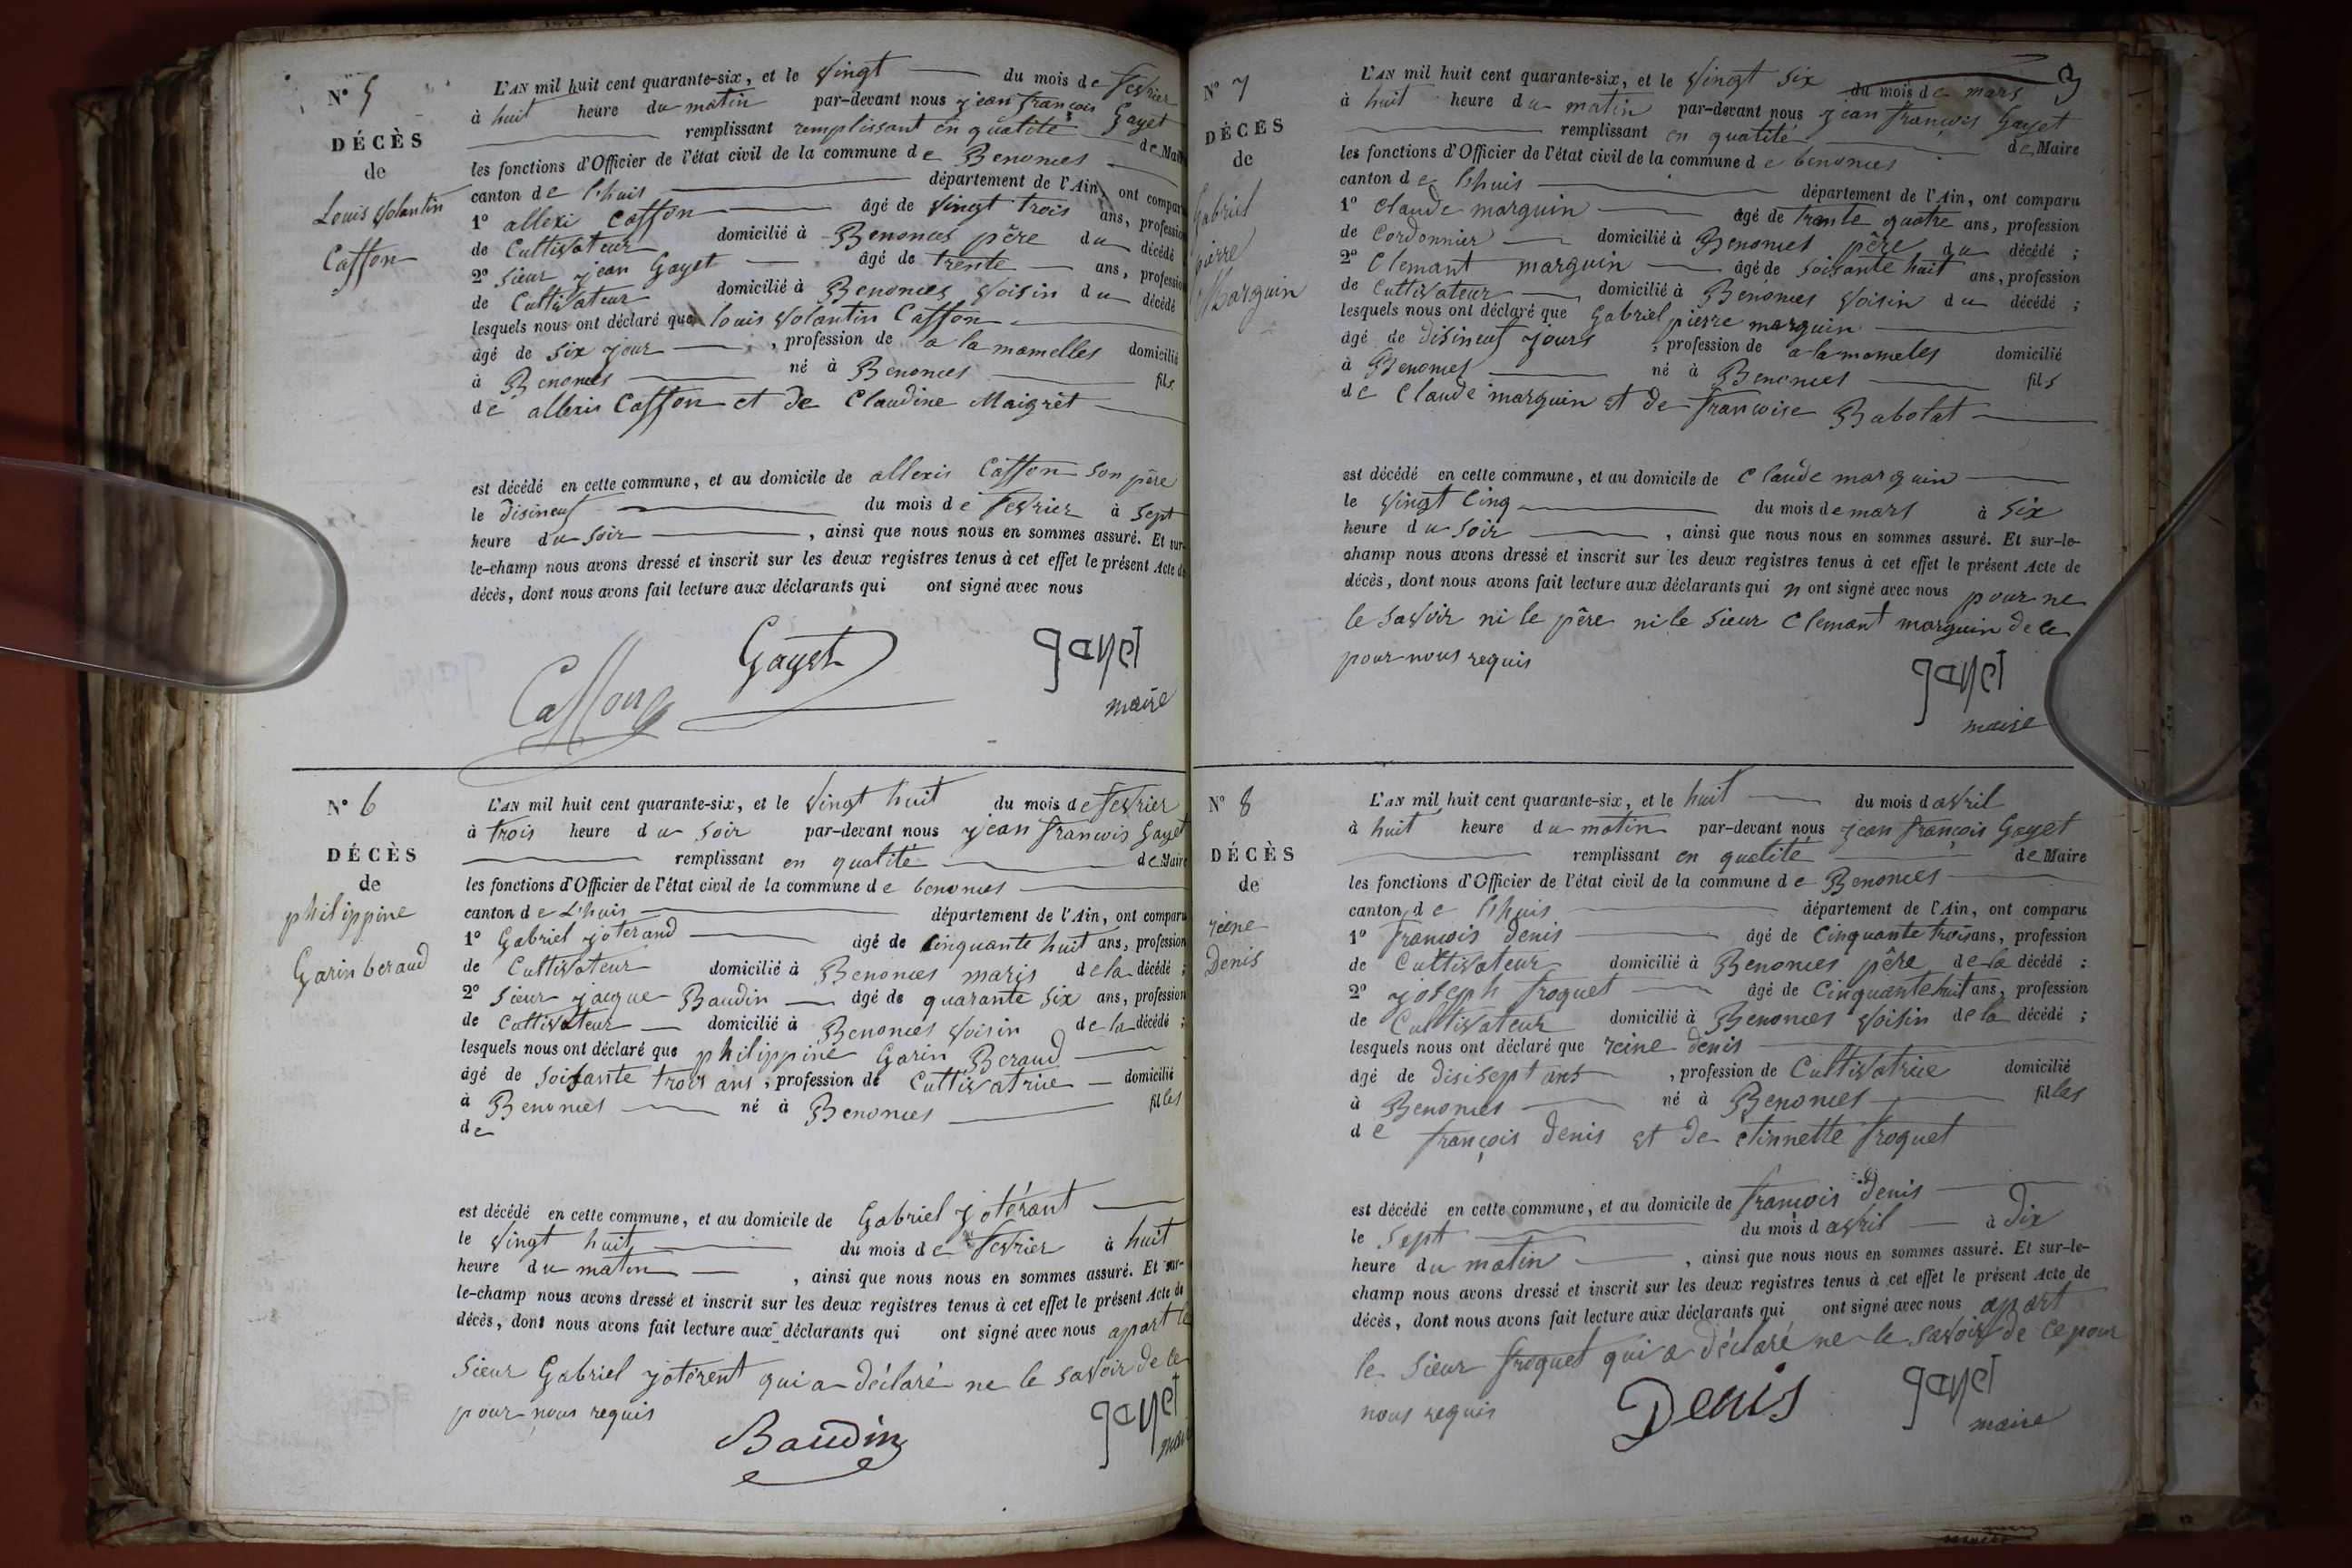 N° 5
DÉCÈS
de
Louis Volantin
Caffon
L'AN mil huit cent quarante-six, et le vingt du mois de fevrier
à huit heure du matin par-devant nous jean françois Gayet
remplissant remplissant en qualité de Maire
les fonctions d'Officier de l'état civil de la commune de Benonces
canton de l'huis département de l'Ain, ont comparu
1° allexi Caffon âgé de vingt trois ans, profession
de Cultivateur domicilié à Benonces père du décédé
2° sieur jean Gayet âgé de trente ans, profession
de Cultivateur domicilié à Benonces voisin du décédé
lesquels nous ont déclaré que louis volantin Caffon
âgé de six jour, profession de a la mamelles domicilié
à Benonces né à Benonces fils
de allexis Caffon et de Claudine Maigret
est décédé en cette commune, et au domicile de allexis Caffon son père
le disineuf du mois de fevrier à sept
heure du soir, ainsi que nous nous en sommes assuré. Et sur-
le-champ nous avons dressé et inscrit sur les deux registres tenus à cet effet le présent Acte de
décès, dont nous avons fait lecture aux déclarants qui ont signé avec nous
Caffon Gayet gayet
maire
N° 6
DÉCÈS
de
philippine
Garin beraud
L'AN mil huit cent quarante-six, et le vingt huit du mois de fevrier
à trois heure du soir par-devant nous jean francois Gayet
remplissant en qualité de Maire
les fonctions d'Officier de l'état civil de la commune de benonces
canton de L'huis département de l'Ain, ont comparu
1° Gabriel joterand âgé de Cinquante huit ans, profession
de Cultivateur domicilié à Benonces maris de la décédé ;
2° sieur jacque Baudin âgé de quarante six ans, profession
de Cultivateur domicilié à Benonces voisin de la décédé ;
lesquels nous ont déclaré que philippine Garin Beraud
âgé de soisante trois ans, profession de Cultivatrice domicilié
à Benonces né à Benonces filles
de
est décédé en cette commune, et au domicile de Gabriel jotérant
le vingt huit du mois de fevrier à huit
heure du matin, ainsi que nous nous en sommes assuré. Et sur-
le-champ nous avons dressé et inscrit sur les deux registres tenus à cet effet le présent Acte de
décès, dont nous avons fait lecture aux déclarants qui ont signé avec nous apart le
sieur Gabriel jotérent qui a déclaré ne le savoir de ce
pour nous requis
Baudin gayet
maire
N° 7
DÉCÈS
de
Gabriel
pierre
Marguin
L'AN mil huit cent quarante-six, et le vingt six du mois de mars
à huit heure du matin par-devant nous jean françois Gayet
remplissant en qualité de Maire
les fonctions d'Officier de l'état civil de la commune de benonces
canton de l'huis département de l'Ain, ont comparu
1° Claude marguin âgé de trante quatre ans, profession
de Cordonnier domicilié à Benonces père du décédé ;
2° Clemant marguin âgé de soisante huit ans, profession
de Cultivateur domicilié à Benonces voisin du décédé ;
lesquels nous ont déclaré que Gabriel pierre marguin
âgé de disineuf jours, profession de a la mameles domicilié
à Benonces né à Benonces fils
de Claude marguin et de francoise Babolat
est décédé en cette commune, et au domicile de Claude marguin
le vingt Cinq du mois de mars à six
heure du soir, ainsi que nous nous en sommes assuré. Et sur-le-
champ nous avons dressé et inscrit sur les deux registres tenus à cet effet le présent Acte de
décès, dont nous avons fait lecture aux déclarants qui n ont signé avec nous pour ne
le savoir ni le père ni le sieur Clemant marguin de ce
pour nous requis
gayet
maire
N° 8
DÉCÈS
de
reine
Denis
L'AN mil huit cent quarante-six, et le huit du mois d avril
à huit heure du matin par-devant nous jean françois Gayet
remplissant en qualité de Maire
les fonctions d'Officier de l'état civil de la commune de Benonces
canton de l'huis département de l'Ain, ont comparu
1° francois denis âgé de Cinquante trois ans, profession
de Cultivateur domicilié à Benonces père de la décédé ;
2° joseph froquet âgé de Cinquante huit ans, profession
de Cultivateur domicilié à Benonces voisin de la décédé ;
lesquels nous ont déclaré que reine denis
âgé de disisept ans, profession de Cultivatrice domicilié
à Benonces né à Benonces filles
de françois denis et de étinnette froquet
est décédé en cette commune, et au domicile de françois denis
le sept du mois d avril à dix
heure du matin, ainsi que nous nous en sommes assuré. Et sur-le-
champ nous avons dressé et inscrit sur les deux registres tenus à cet effet le présent Acte de
décès, dont nous avons fait lecture aux déclarants qui ont signé avec nous apart
le sieur froquet qui a déclaré ne le savoir de ce pour
nous requis
Denis gayet
maire